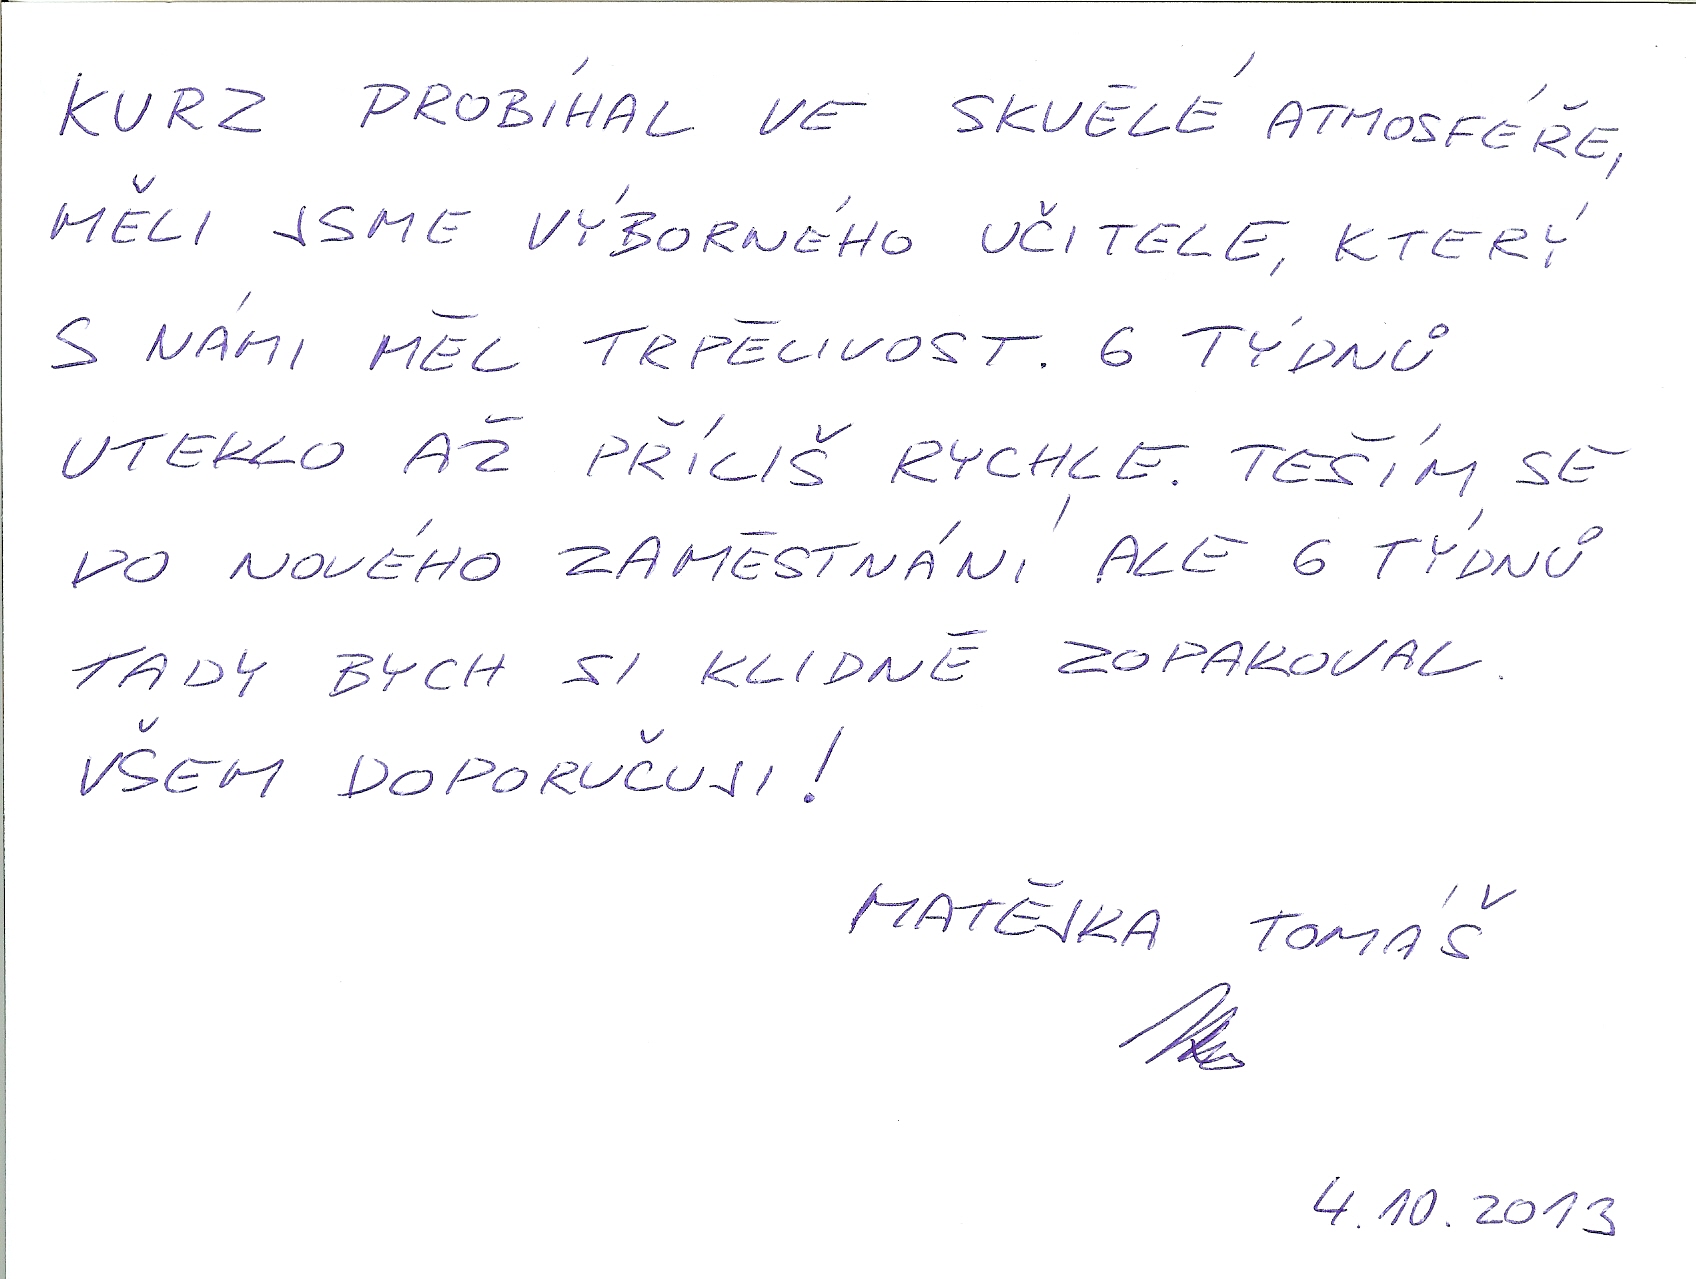 KURZ PROBÍHAL VE SKVĚLÉ ATMOSFÉŘE,
MĚLI JSME VÝBORNÉHO UČITELE, KTERÝ
S NÁMI MĚL TRPĚLIVOST. 6 TÝDNŮ
UTEKLO AŽ PŘÍLIŠ RYCHLE. TEŠÍM SE
DO NOVÉHO ZAMĚSTNÁNÍ ALE 6 TÝDNŮ
TADY BYCH SI KLIDNĚ ZOPAKOVAL.
VŠEM DOPORUČUJI!
MATĚJKA TOMÁŠ
4.10.2013